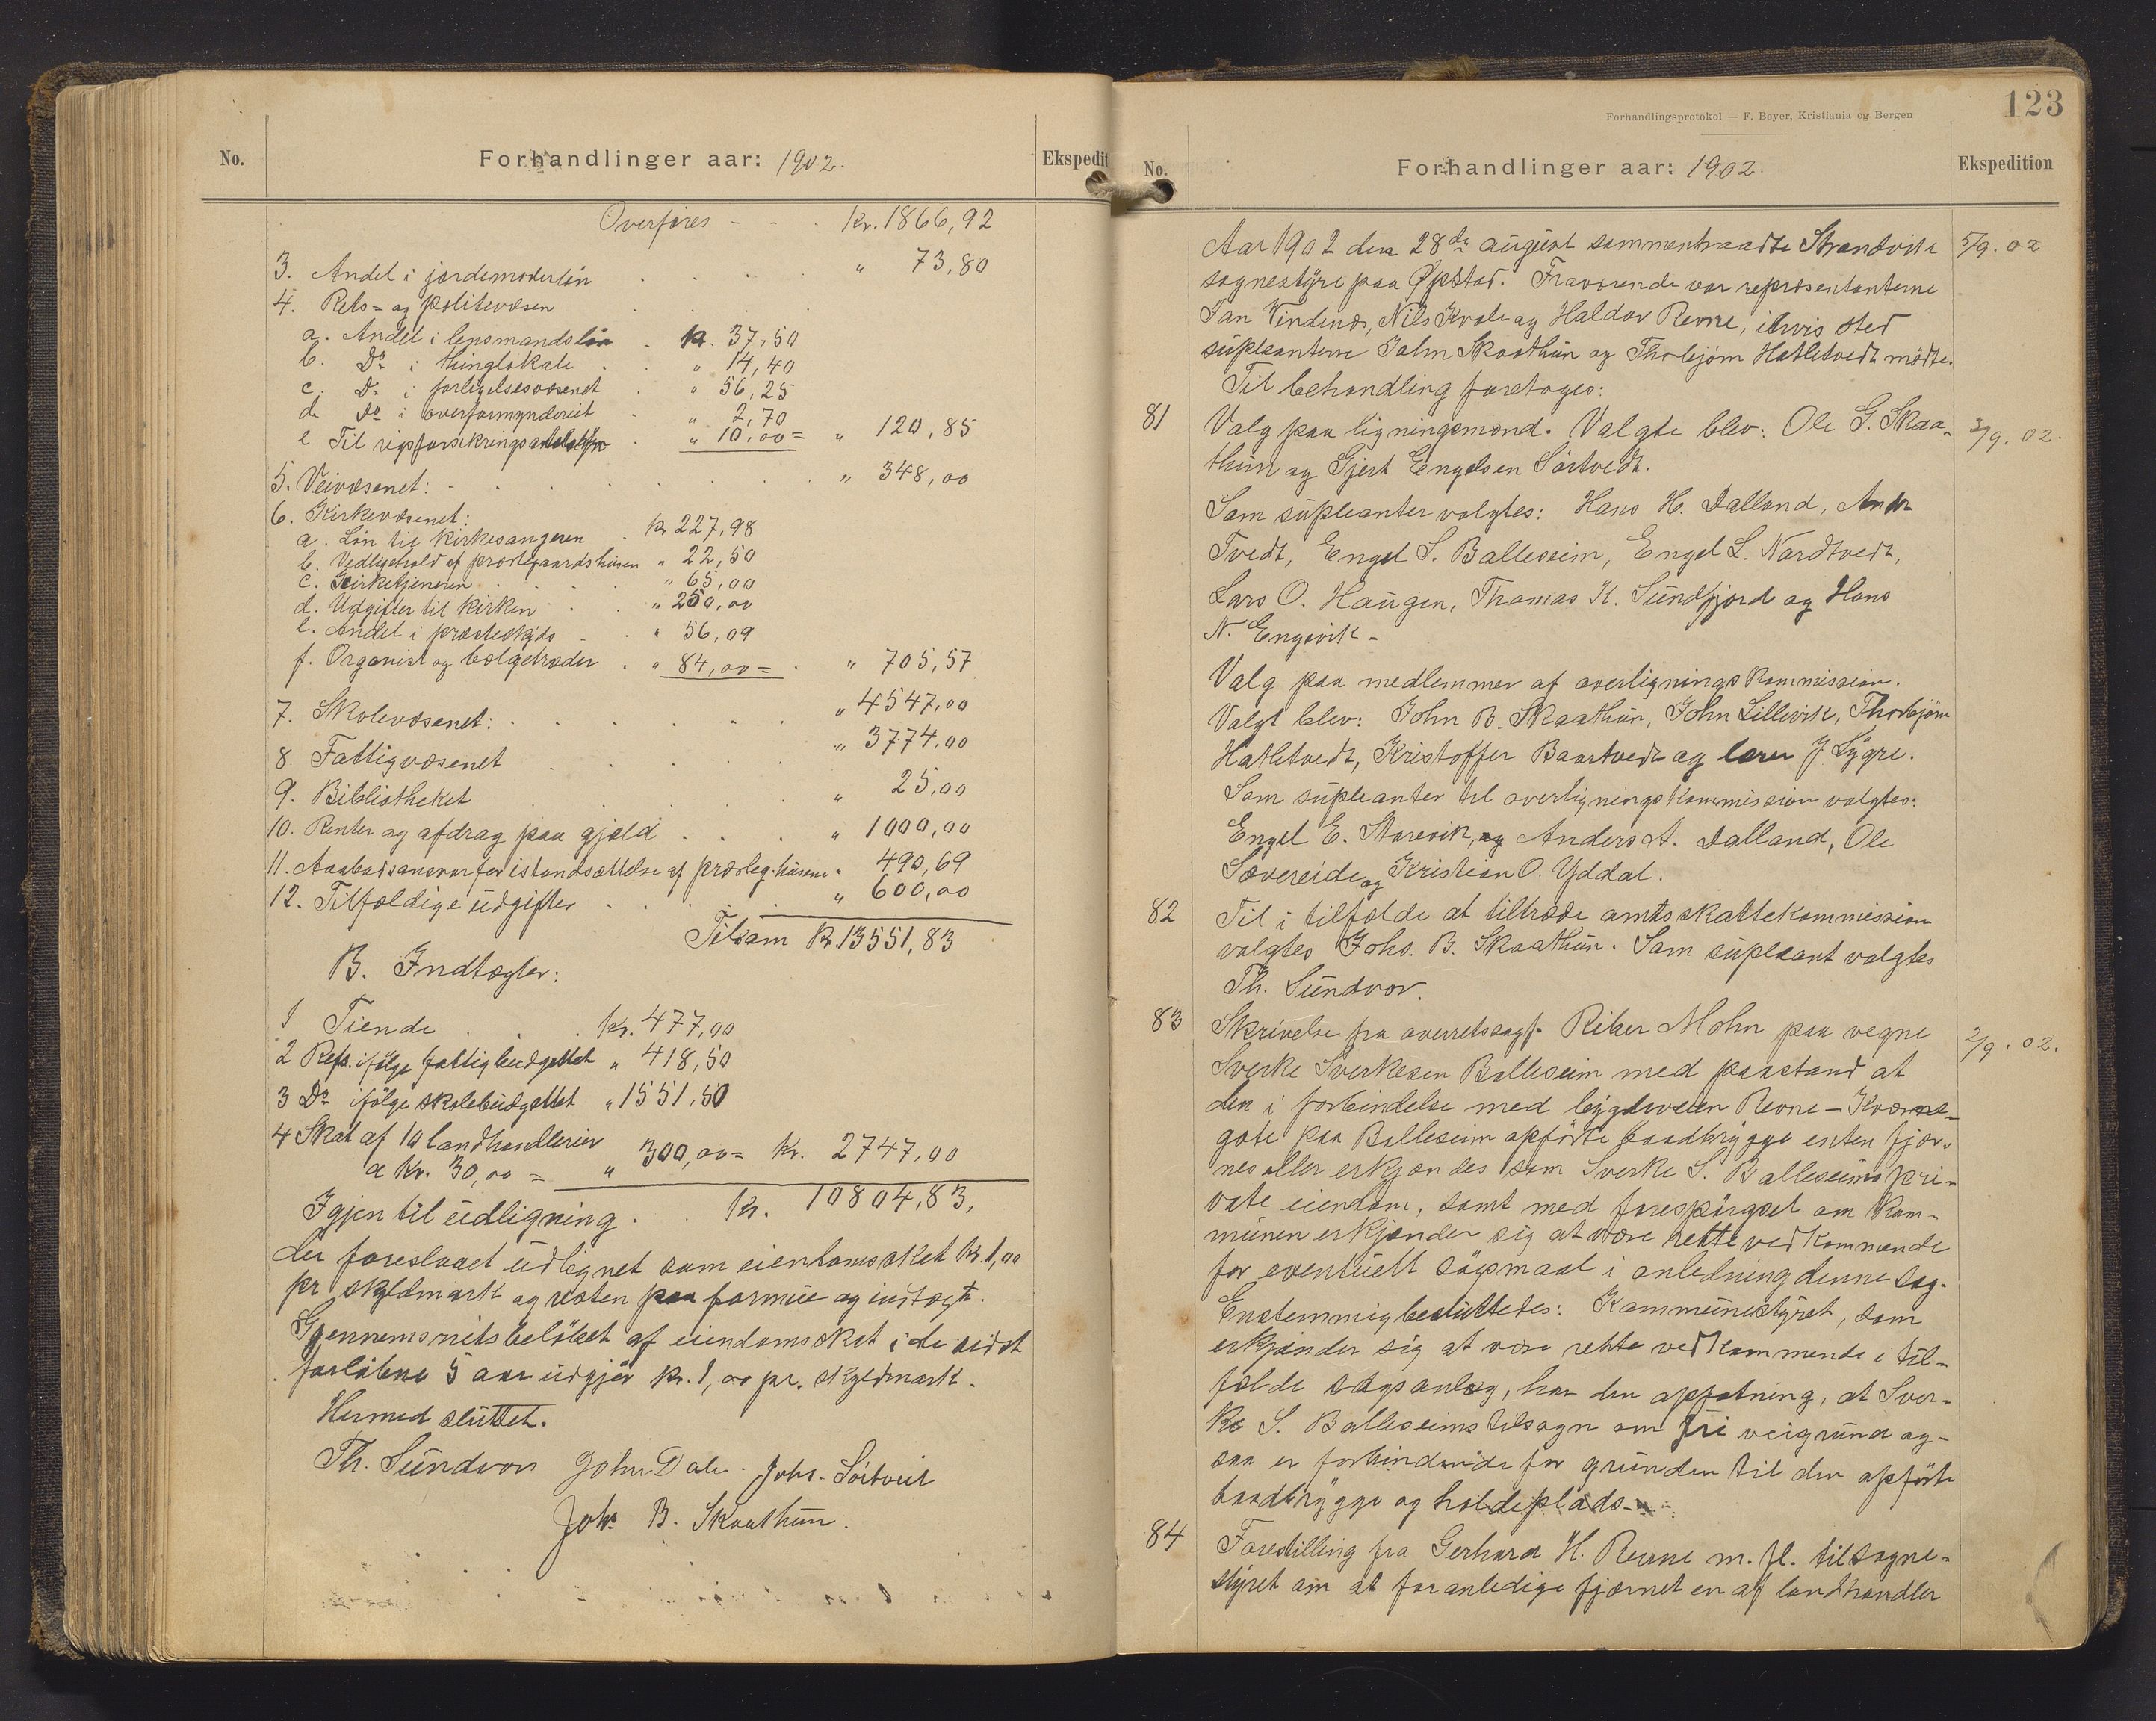 No.
Forhandlinger aar: 1902.
Ekspedit
Overføres - - . Kr. 1866,92
3. Andel i jordemoderløn . . . . " 73,80
4. Rets- og politivæsen
a. Andel i lensmandsløn . kr. 37,50
b. Do i thinglokale . " 14,40
c. Do i forligelsesvæsenet " 56,25
d. Do i overformynderiet " 2,70
e Til rigsforsikringsanstalten . " 10,00 = " 120,85
5. Veivæsenet: - . . . . . . " 348,00
6. Kirkevæsenet:
a. Løn til kirkesangeren . kr 227,98
b. Vedligehold af præstegaardshusen " 22,50
c. Kirketjeneren . . . " 65,00
d. Udgifter til kirken . . " 250,00
e. Andel i præsteskyds - . " 56,09
f. Organist og bælgetræder . " 84,00 = . " 705,57
7. Skolevæsenet: . . . . . . " 4547,00
8 Fattigvæsenet . . . . . " 3774,00
9. Bibliotheket . . . . . " 25,00
10. Renter og afdrag paa gjæld . . . " 1000,00
11. Aabodsansvar for istandsættelse af præsteg. husene " 490,69
12. Tilfældige udgifter . . . . . " 600,00
Tilsam Kr. 13551,83
B. Indtægter:
1 Tiende . . . Kr. 477,00
2 Ref. ifølge fattigbudgettet " 418,50
3 Do ifølge skolebudgettet " 1551,50
4 Skat af 10 landhandlerier
a Kr. 30,00 = " 300,00 = Kr. 2747,00
Igjen til udligning . . Kr. 10804,83.
der foreslaaet udlignet som eiendomsskat kr. 1,00
pr skyldmark og resten paa formue og indtægt.
Gjennemsnitsbeløbet af eiendomsskat i de sidst
forløbne 5 aar udgjør kr. 1,00 pr. skyldmark.
Hermed sluttet.
Th. Sundvor John Dale. Johs. Søitveit
Johs B. Skaathun.
123
Forhandlingsprotokol — F. Beyer, Kristiania og Bergen
No.
Forhandlinger aar: 1902.
Ekspedition
Aar 1902 den 28de august sammentraadte Strandvik 5/9. 02
sognestyre paa Øpstad. Fraværende var repræsentanterne
Jan Vindenæs, Nils Kvale og Haldor Revne, i hvis sted
supleanterne John Skaathun og Thorbjørn Hatletvedt mødte.
Til behandling foretoges:
81 Valg paa ligningsmænd. Valgte blev: Ole G. Skaa- 2/9. 02.
thun og Gjert Engelsen Sørtvedt.
Som supleanter valgtes: Hans H. Dalland, Andr
Tvedt, Engel S. Balleseim, Engel L. Nordtvedt,
Lars O. Haugen, Thomas K. Sundfjord og Hans
N. Engevik -
Valg paa medlemmer af overligningskommission.
Valgt blev: John B. Skaathun, John Lillevik, Thorbjørn
Hatletvedt, Kristoffer Baartvedt og lærer J Lygre.
Som supleanter til overligningskommission valgtes:
Engel E. Storevik, og Anders A. Dalland, Ole
Sævereide og Kristian O. Yddal.
82 Til i tilfælde at tiltræde amtsskattekommission
valgtes Johs. B. Skaathun. Som supleant valgtes
Th. Sundvor.
83 Skrivelse fra overretssagf. Riber Mohn paa vegne 2/9. 02.
Sverke Sverkesen Balleseim med paastand at
den i forbindelse med bygdeveien Revne - Kværne-
gote paa Balleseim opførte baadbrygge enten fjær-
nes eller erkjendes som Sverke S. Balleseims pri-
vate eiendom, samt med forespørgsel om kom-
munen erkjender sig at være rette vedkommende
for eventuelt søgsmaal i anledning denne sag.
Enstemmig besluttedes: Kommunestyret, som
erkjender sig at være rette vedkommende i til-
fælde sagsanlæg, har den opfatning, at Sver-
ke S. Balleseims tilsagn om fri veigrund og-
saa er forbindende for grunden til den opførte
baadbrygge og holdeplads -
84 Forestilling fra Gerhard H. Revne m. fl. til sogne-
styret om at foranledige fjærnet en af landhandler